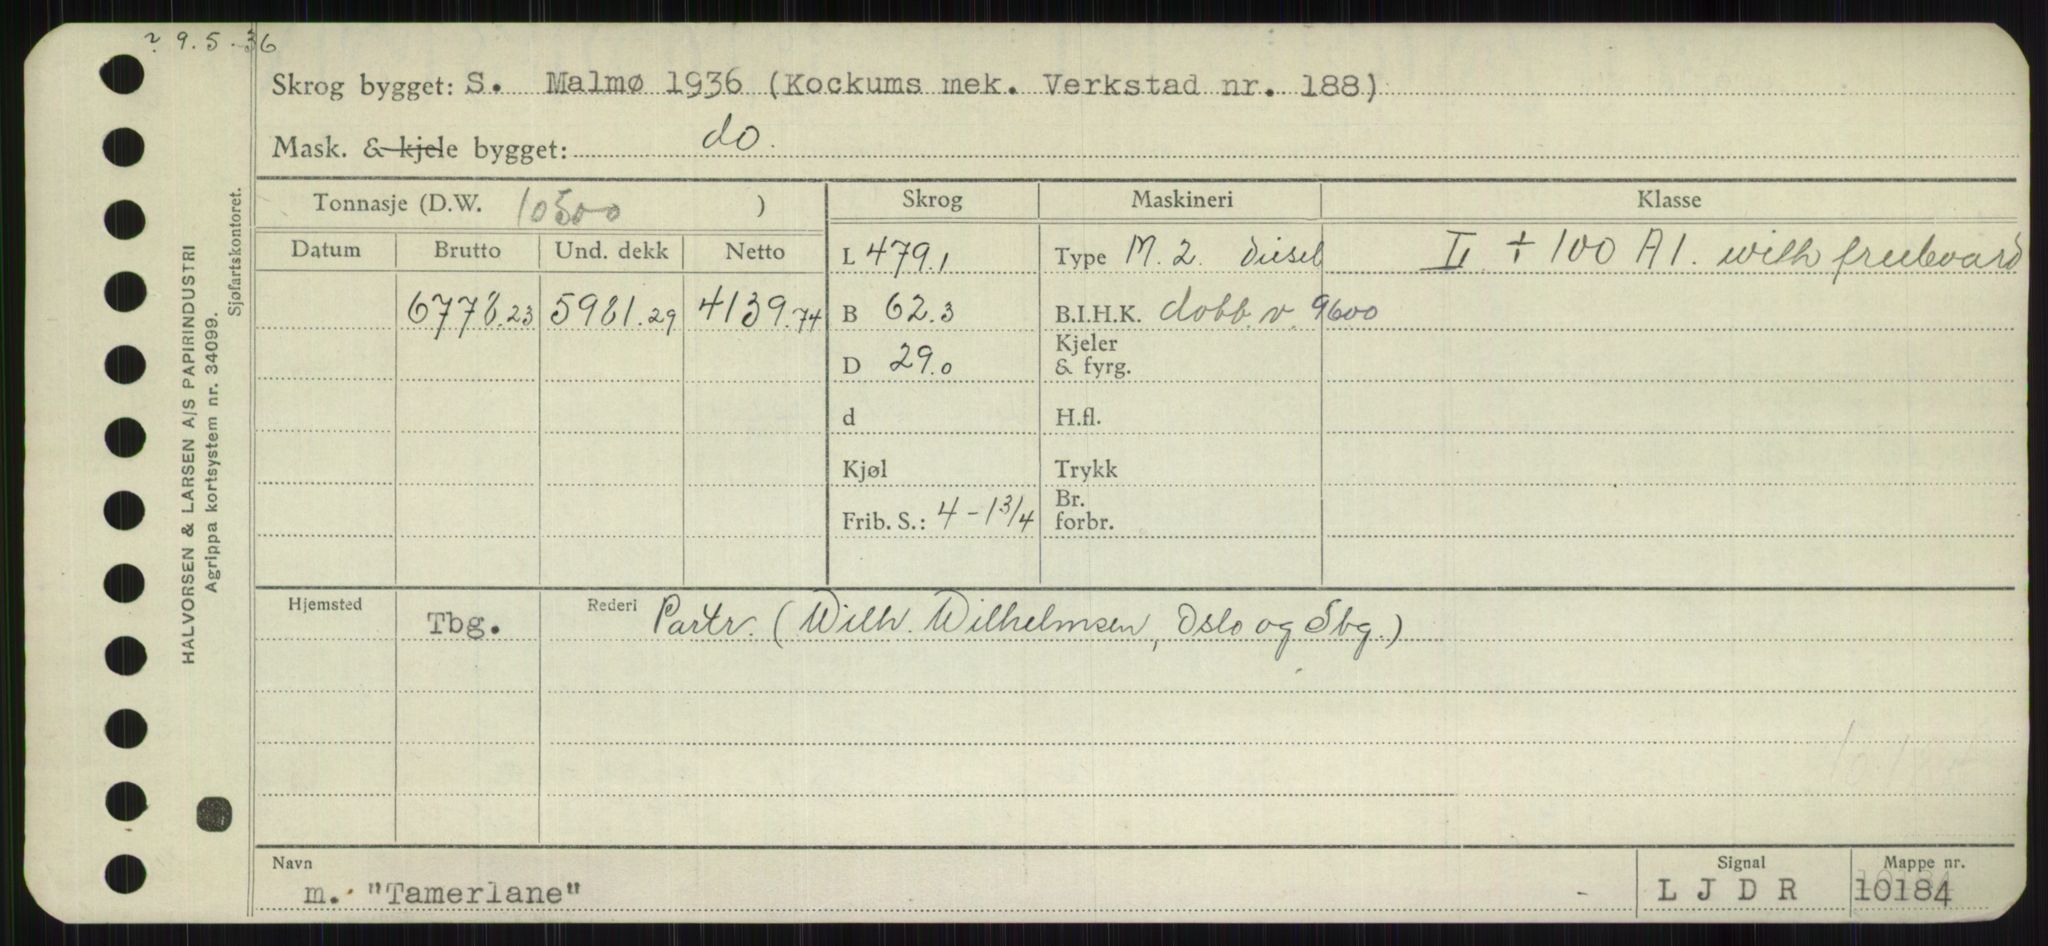 ? 9.5.36
Skrog bygget: S. Malmø 1936 (Kockums mek. Verkstad nr. 188)
Mask. & kjele bygget: do.
Tonnasje (D.W. 10500 ) Skrog Maskineri Klasse
Datum Brutto Und. dekk Netto L 479.1 Type M. 2. Diesel + 100 A1. with freeboard
6778.23 5981.29 4139.74 B 62.3 B.I.H.K. dobb. v. 9600
D 29.0 Kjeler & fyrg.
d H.fl.
Kjøl Trykk
Frib. S.: 4-1 3/4 Br. forbr.
Hjemsted Tbg. Rederi Partr. (Wilh. Wilhelmsen, Oslo og Tbg.)
Navn Signal Mappe nr.
m. "Tamerlane" - L J D R 10184
HALVORSEN & LARSEN A/S PAPIRINDUSTRI
Agrippa kortsystem nr. 34099.
Sjøfartskontoret.